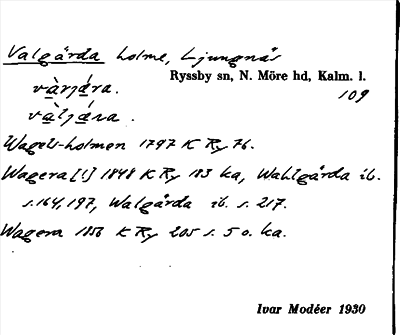 Valgärda holme, Ljungnäs
Ryssby sn, N. Möre hd, Kalm. l.
109
vàrjára.
vàljára.
Wagels-holmen 1797 K Ry 76.
Wagera [!] 1848 K Ry 183 ka, Wahlgärda ib.
s. 164, 197, Walgärda ib. s. 217.
Wagera 1856 K Ry 205 s. 5 o. ka.
Ivar Modéer 1930